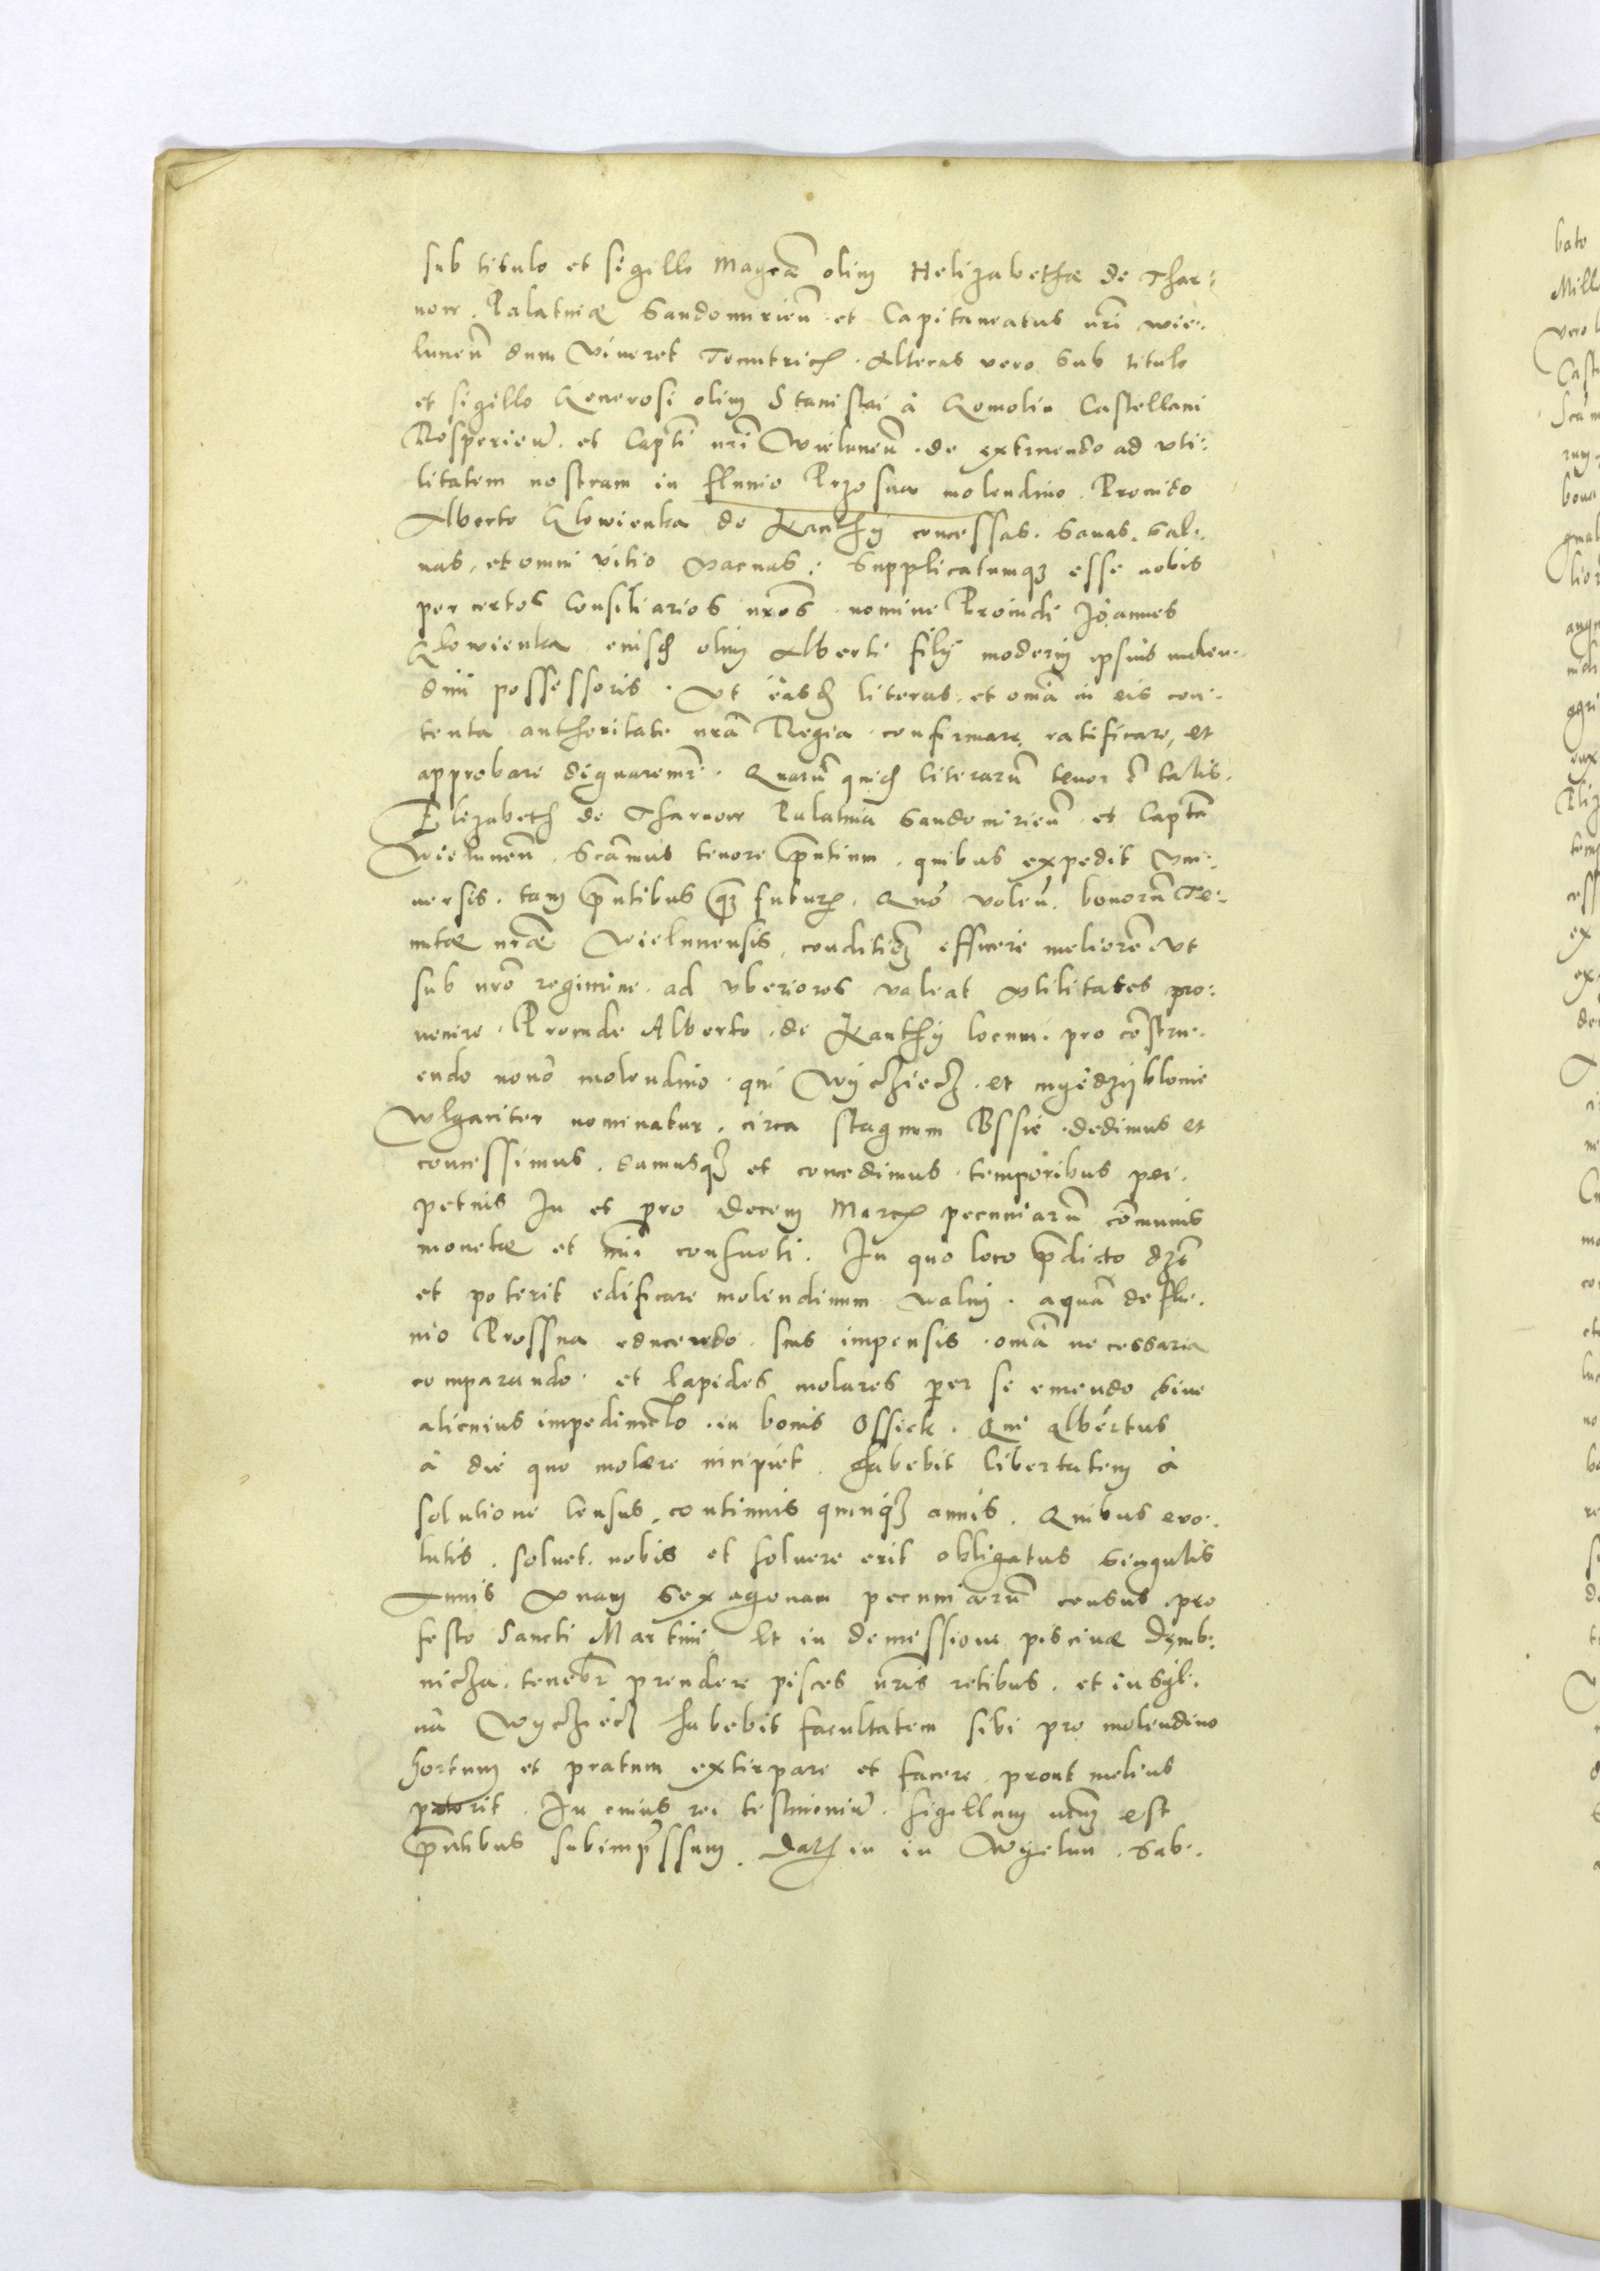 sub titulo et sigillo Magcæ olim Helizabethæ de Thar-
now Palatinæ Sandomirien̄ et Capitaneatus nr̄i wie-
lunen̄ dum viveret Tenutric . Alteras vero sub titulo
et sigillo Generosi olim Stanislai à Gomolin Castellani
Rosperien̄ . et Captī nr̄i Wielunen̄ . de extruendo ad vti-
litatem nostram in fluvio Przosna molendino . Provido
Alberto Glowienka de Kanthÿ concessas . sanas . sal-
vas , et omni vitio vacuas : Supplicatumqꝫ esse nobis
per certos Consiliarios nr̄os nomine Providi Joannes
Glowienka eiusd olim Alberti filÿ moderni ipsius molen-
dini possessoris . vt easd literas . et omā in eis con-
tenta authoritate nrā Regia confirmare ratificare , et
approbare dignaremr̄ . Quarū quid literarū tenor ē talis .
Elizabeth de Tharnow Palatina Sandomirien̄ et Captā
Wielunen̄ . Scāmus tenore pn̄tium . quibus expedit vni-
uersis . tam pn̄tibus qꝫ futur . Quō volen̄ . bonorū Te-
nutæ nr̄æ Wielunensis , conditioē efficere meliorē vt
sub nrō regimine ad vberiores valeat vtilitates pro-
uenire . Provide Alberto de Kanthÿ locum . pro cōstru-
endo novo molendino . qui Wÿczÿecz . et myedzÿblonie
Wlgariter nominatur . circa stagnum Pssie dedimus et
concessimus . damusqꝫ et concedimus temporibus per-
petuis In et pro decem Marc pecuniarū cōmunis
monetæ et nūi consueti . In quo loco pdicto dꝫē
et poterit edificare molendinum walny . aquā de flu-
vio Prossna educendo . suis impensis . omā necessaria
comparando . et lapides molares per se emendo sine
alicuius impedimēto . in bonis Ossiek . Qui Albertus
à die quo molere incipiet . habebit libertatem à
solutione Census , continuis quinqꝫ annis . Quibus evo-
lutis . soluet nobis et soluere erit obligatus singulis
Annis vnam sexagenam pecuniarū census pro
festo Sancti Martini Et in demissione piscinæ Dymb-
nicza . tenebr̄ prendere pisces nr̄is retibus . et in syl-
va Wyczÿecz habebit facultatem sibi pro molendino
hortum et pratum extirpare et facere . prout melius
poterit . In cuius rei testimoniū . sigillum nr̄m est
pn̄tibus subimpssum . Dat in in Wyelun . Sab-